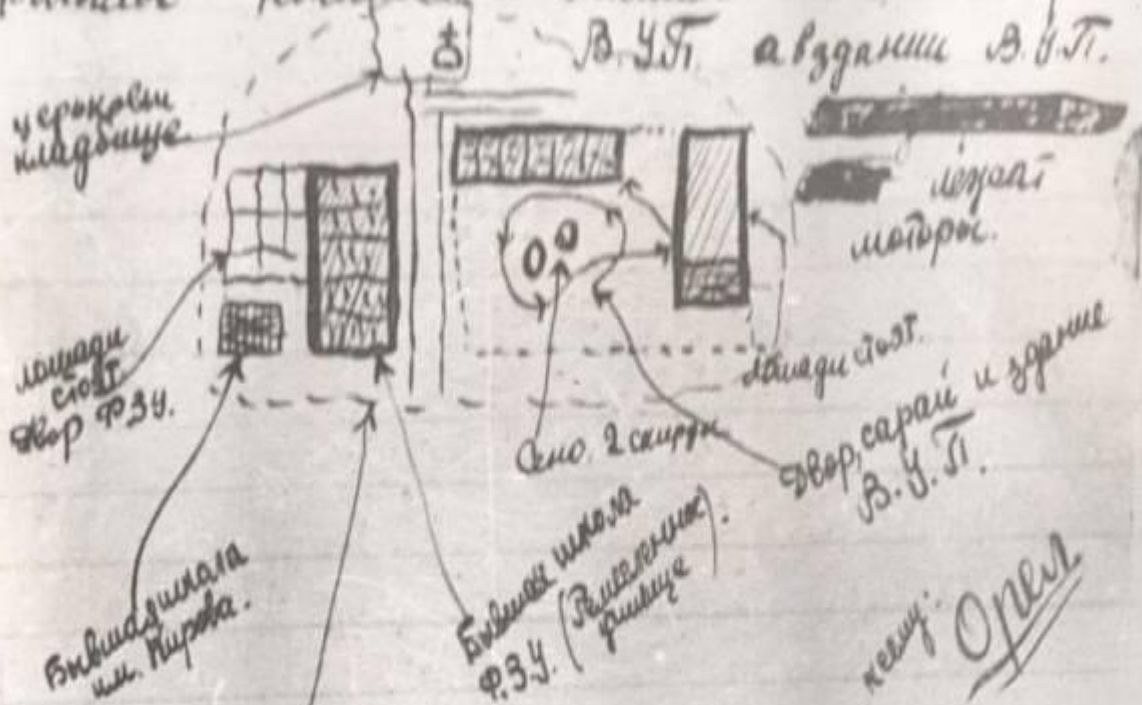 В.У.П. а в здании В.У.П.
лежат
моторы.
церковь и
кладбище
лошади
стоят
двор ФЗУ.
лошади стоят.
Сено. 2 скирды
двор, сарай и здание
В.У.П.
Бывшая школа
им. Кирова.
Бывшая школа
Ф.З.У. (Ремесленное
училище).
Орел